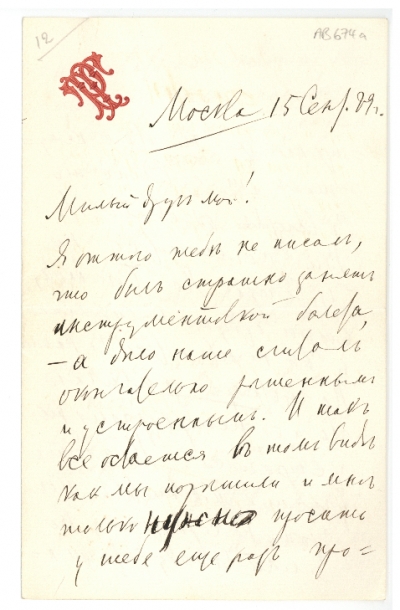 12
AB674a
Москва 15 Сент. 89г.
Милый другъ мой!
Я оттого тебѣ не писалъ,
что былъ страшно занятъ
инструментовкой балета,
— а дѣло наше считалъ
окончательно рѣшеннымъ
и устроеннымъ. И такъ
все остается въ томъ видѣ
какъ мы порѣшили и мнѣ
только просить
у тебя еще разъ про=